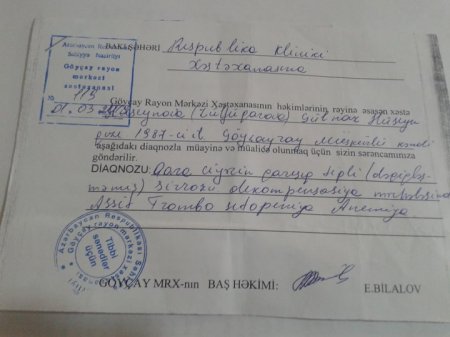 Azərbaycan Respublikası
Səhiyyə Nazirliyi
Göyçay rayon
mərkəzi
xəstəxanası
№ 115
01.03.
BAKI ŞƏHƏRİ Respublika Klinik
Xəstəxanasına
Göyçay Rayon Mərkəzi Xəstəxanasının həkimlərinin rəyinə əsasən xəstə
Gülnar Hüseyn
1987-ci il Göyçay ray kəndi
aşağıdakı diaqnozla müayinə və müalicə olunmaq üçün sizin sərəncamınıza
göndərilir.
DİAQNOZU: Qara ciyərin
Sirrozu dekompensasiya mərhələsində
Assit Trombositopeniya Anemiya
Azərbaycan Respublikası
Göyçay rayon mərkəzi
Tibbi
sənədlər
üçün
GÖYÇAY MRX-nın BAŞ HƏKİMİ: E.BİLALOV